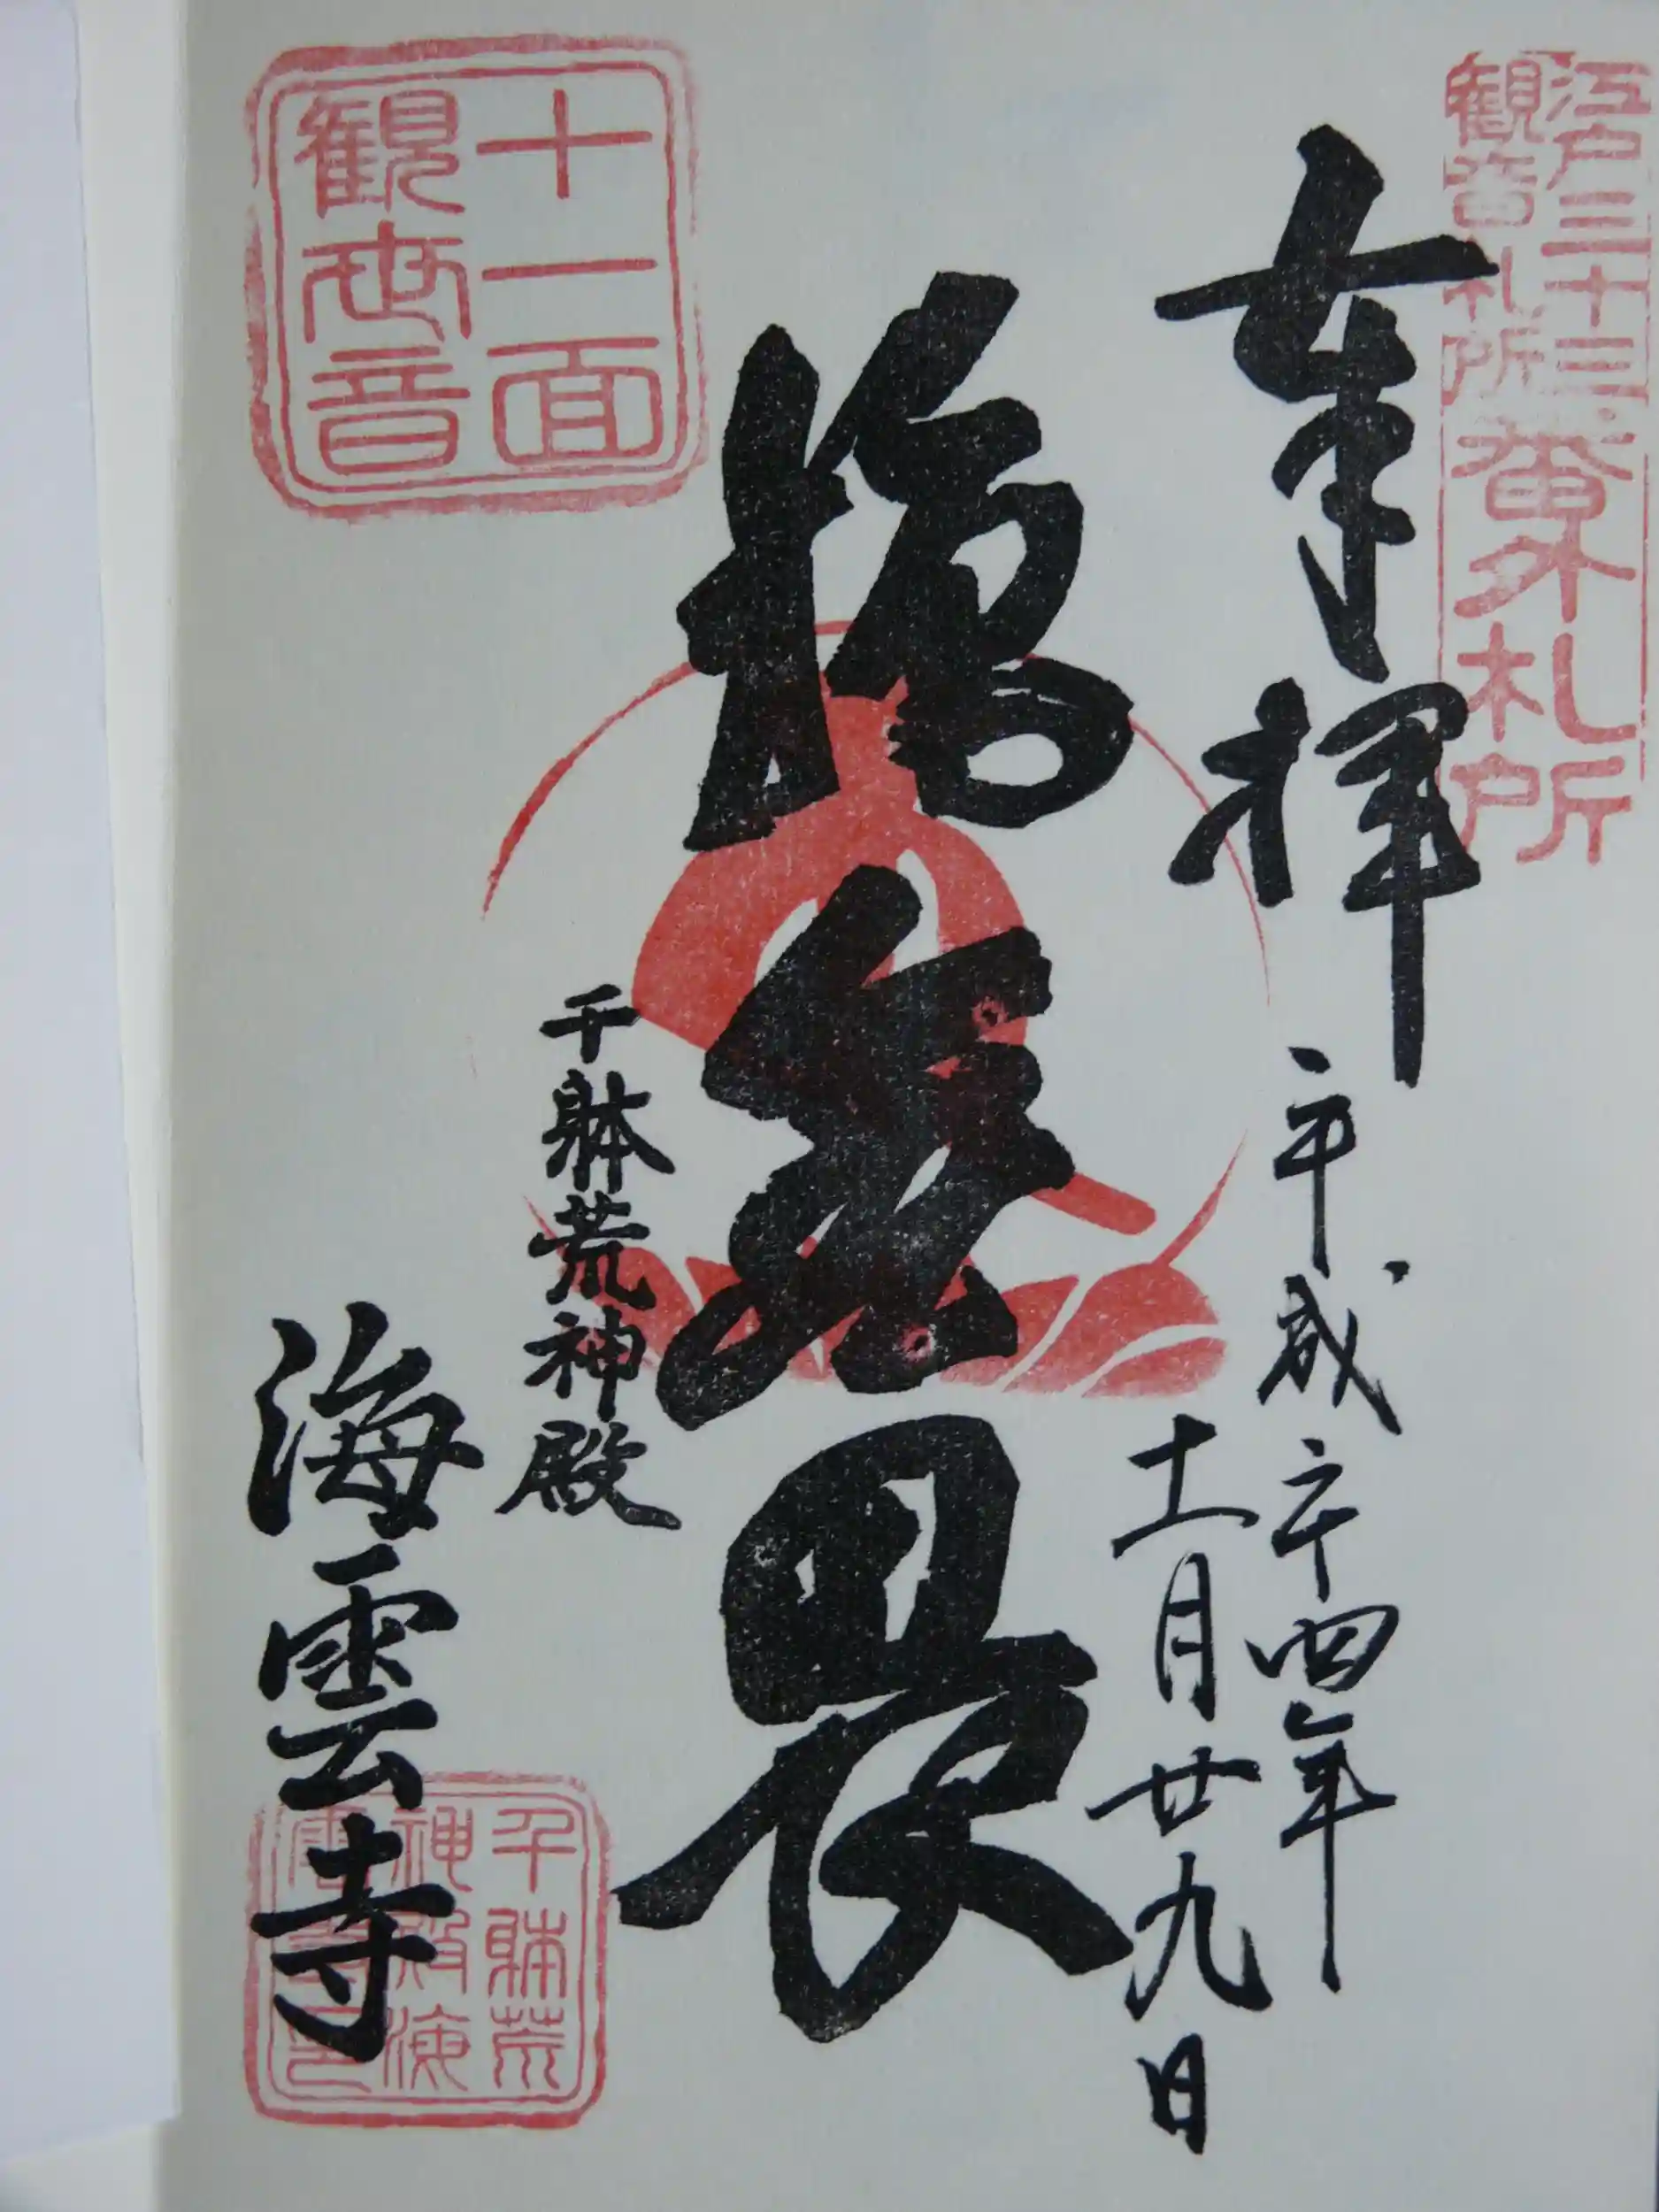 江戸三十三
観音札所
番外札所
奉拝
平成二十四年
十一月廿九日
施無畏
千躰荒神殿
海雲寺
十一面
観世音
千躰荒
神殿海
雲寺印